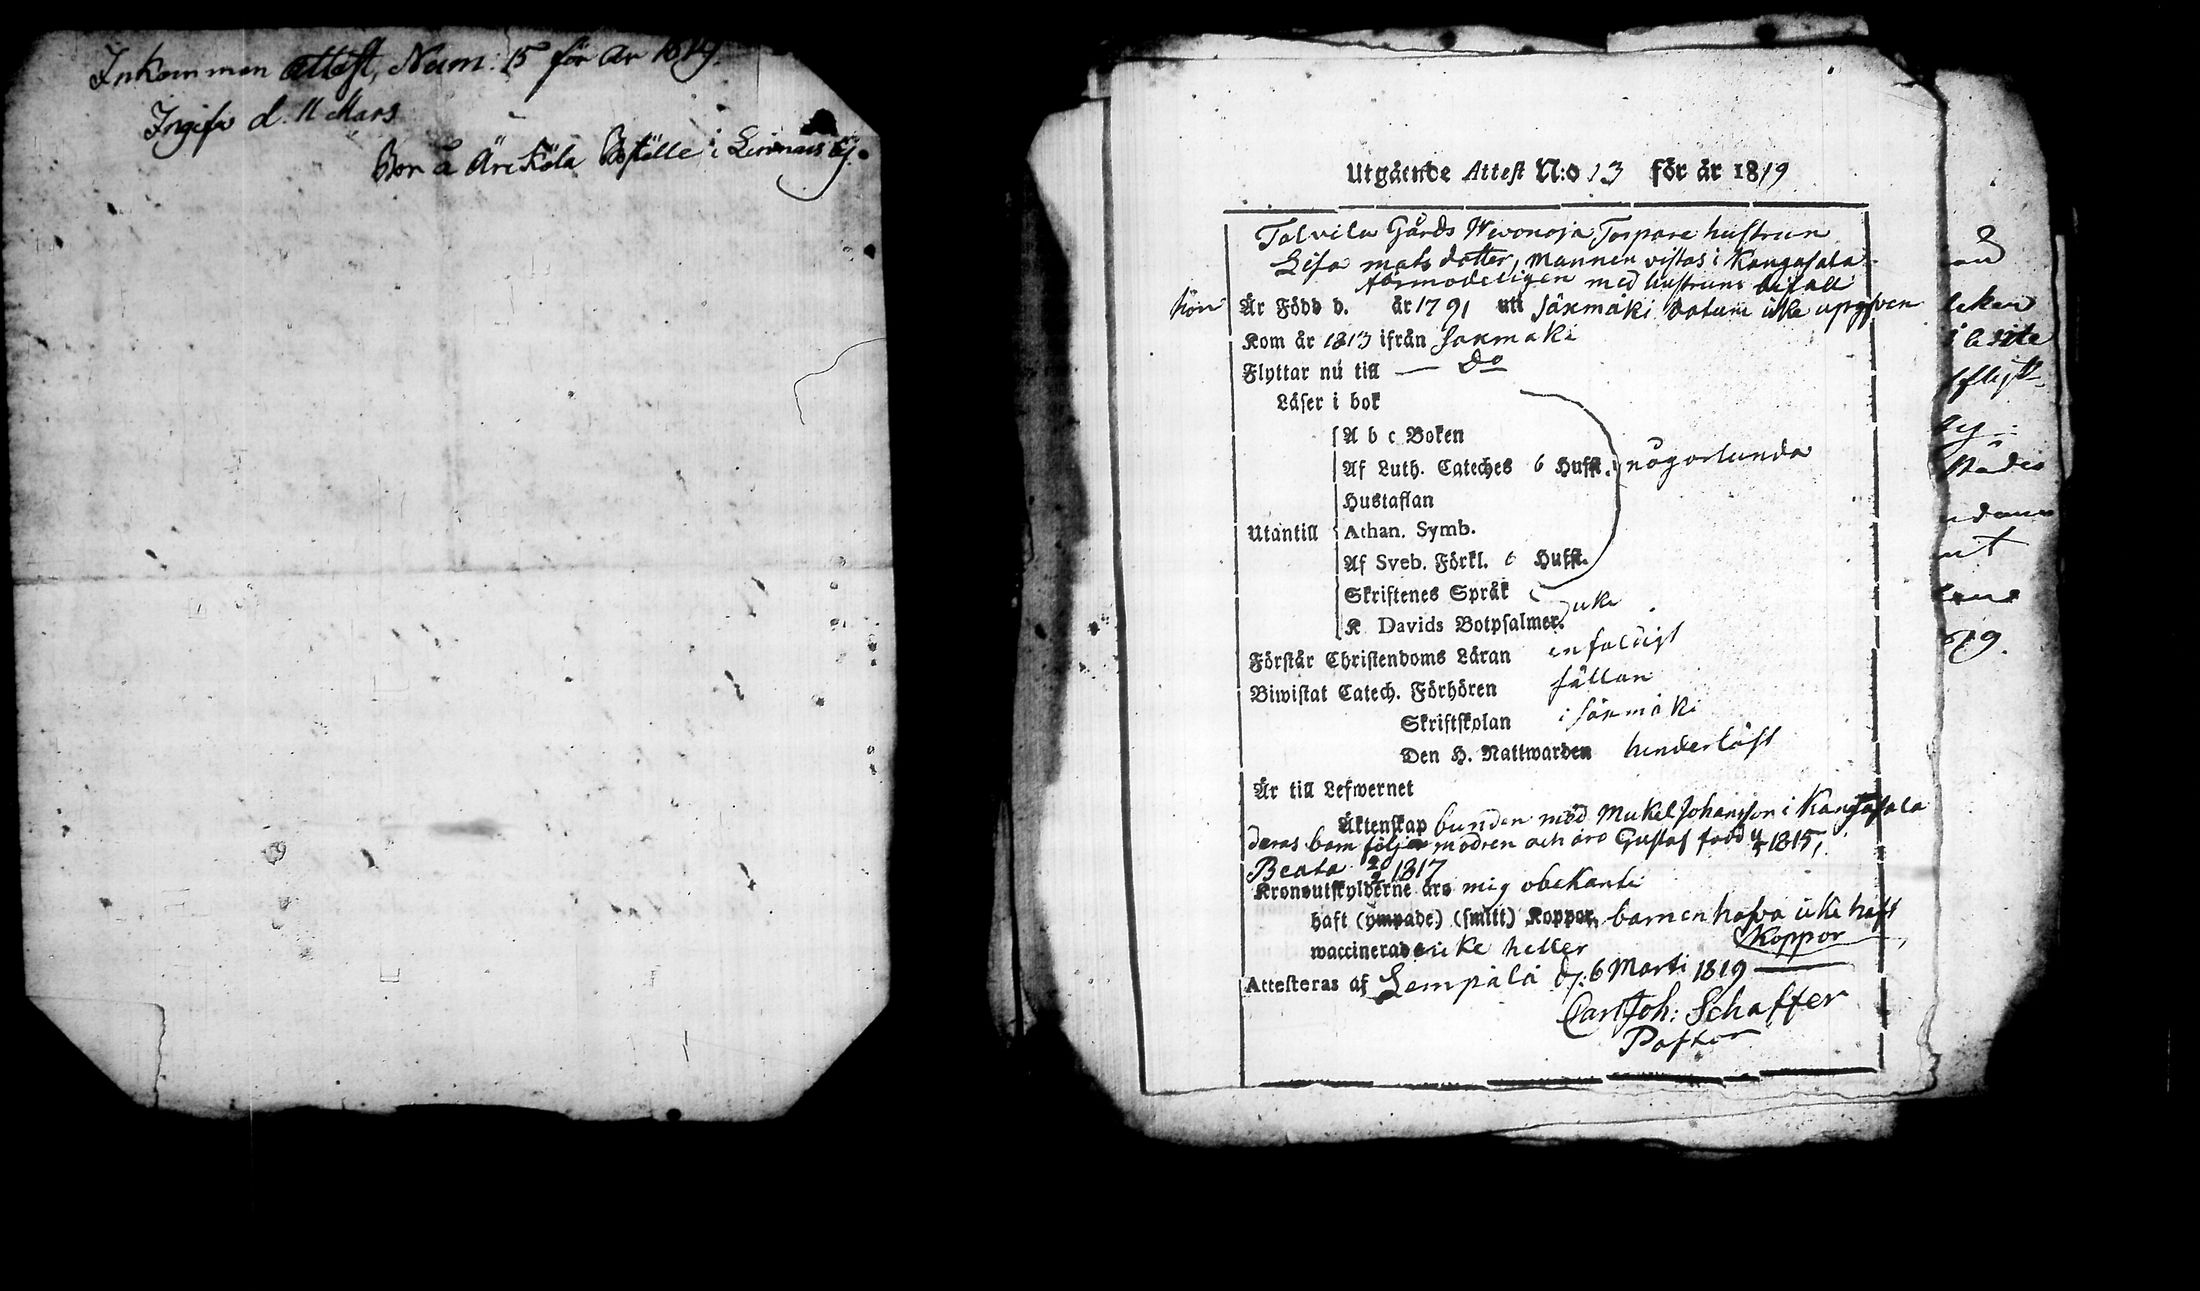 Inkommen attest, Num: 15 för år 1819.
Ingifn d. 11 Mars
Bor å Äreköla Boställe i Lirimais by.
Utgående Attest N:o 13 för år 1819
Talvila Gårds Wevonoja Torpare hustrun
Lisa mats dotter, mannen vistas i Kangasala
förmodeligen med hustruns bifall
hon Är Född d. år 1791 uti Säxmäki datum icke upgifven
Kom år 1813 ifrån Saxmäki
Flyttar nu till — Do
Läser i bok
A b c Boken
Af Luth. Cateches 6 Hufst. någorlunda
Hustaflan
Utantill Athan. Symb.
Af Sveb. Förkl. 6 Hufst.
Skriftenes Språk
K Davids Botpsalmer. icke
Förstår Christendoms Läran enfaldigt
Biwistat Catech. Förhören sällan
Skriftskolan i Säxmäki
Den H. Nattwarden hinderlöst
Är till Lefwernet
Äktenskap bunden med Mickel Johansson i Kangasala
deras barn följa modren och äro Gustaf född 1815,
Beata 1817
Kronoutskylderne äro mig obekante
haft (ympade) (smitt) Koppor, barnen hafva icke haft
Koppor
waccinerade icke heller
Attesteras af Lempälä d. 6 Marti 1819
Carl Joh: Schaffer
Pastor